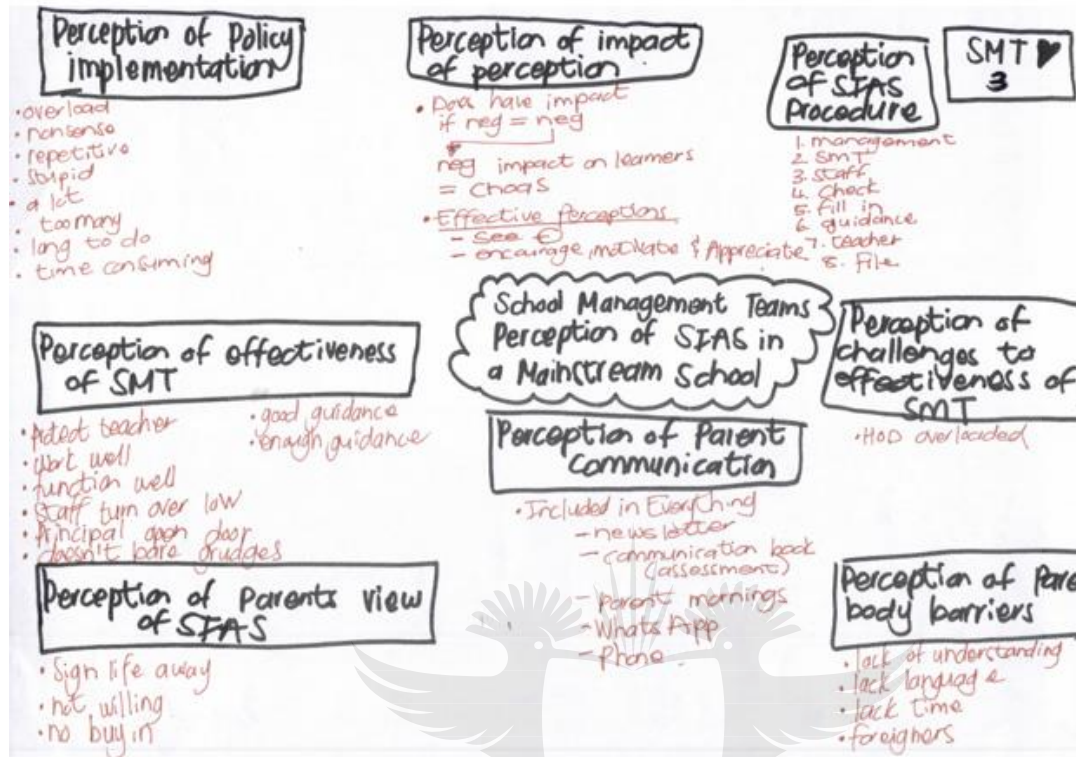 Perception of Policy
implementation
• overload
• nonsense
• repetitive
• stupid
• a lot
• too many
• long to do
• time consuming
Perception of impact
of perception
• Does have impact
if neg = neg
neg impact on learners
= Chaos
• Effective perceptions
- see
- encourage, motivate & Appreciate
Perception
of SIAS
Procedure
1. management
2. SMT
3. Staff
4. Check
5. fill in
6. guidance
7. teacher
8. File
SMT
3
School Management Teams
Perception of SIAS in
a Mainstream School
Perception of effectiveness
of SMT
• Protect teacher
• Work well
• function well
• Staff turn over low
• Principal open door
• doesn't bare grudges
• good guidance
• enough guidance
Perception of Parent
Communication
• Included in Everything
- newsletter
- communication book
(assessment)
- Parent mornings
- Whats App
- Phone
Perception of
challenges to
effectiveness of
SMT
• HOD overloaded
Perception of Parents view
of SIAS
• Sign life away
• not willing
• no buy in
Perception of Pare
body barriers
• lack of understanding
• lack language
• lack time
• foreigners